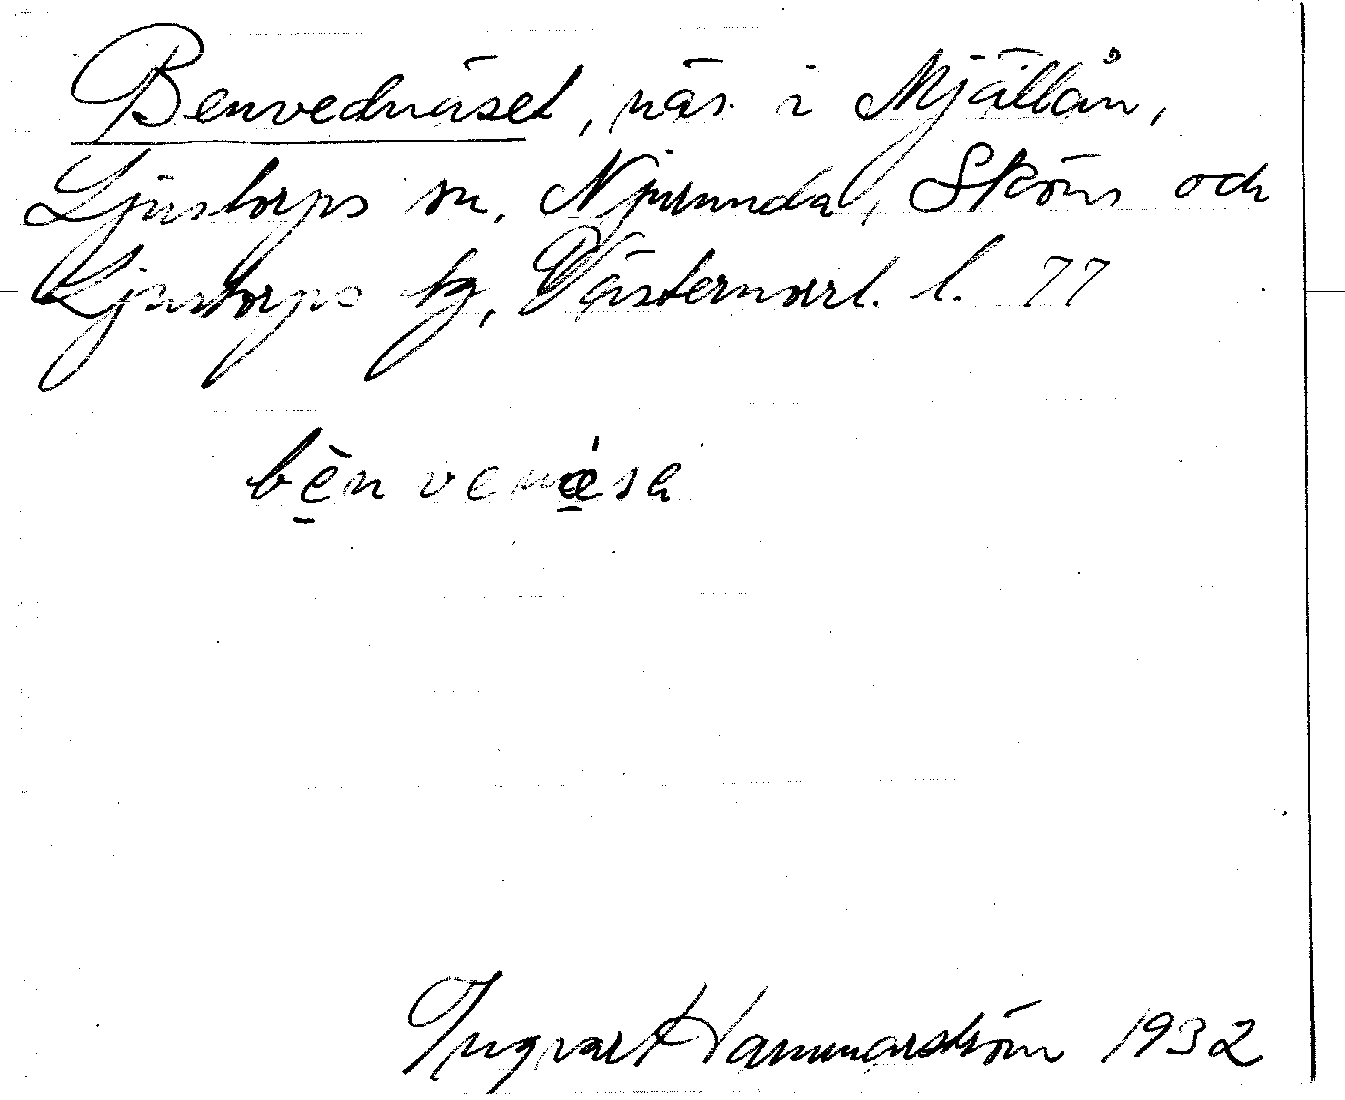 Benvednäset, näs i Mjällån,
Ljustorps sn, Njurunda, Sköns och
Ljustorps tg, Västernorrl. l. 77
bènvenǽsa
Ingvar Hammarström 1932